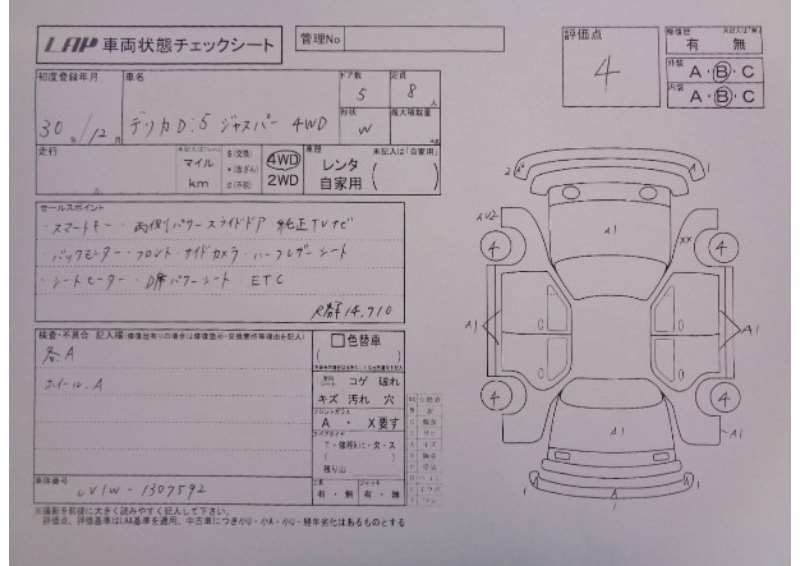 LAP 車両状態チェックシート
管理No
評価点
4
修復歴
有 無
外装
A・B・C
内装
A・B・C
初度登録年月
30年/12月
車名
デリカD:5 ジャスパー 4WD
ドア数
5
定員
8人
形状
W
最大積載量
走行
マイル
km
4WD
2WD
車歴
未記入は「自家用」
レンタ
自家用
セールスポイント
・スマートキー・両側パワースライドドア 純正TVナビ
・バックモニター・フロント・サイドカメラ・ハーフレザーシート
・シートヒーター・D席パワーシート ETC
R済 14,710
検査・不具合 記入欄
各A
ホイール・A
色替車
コゲ 破れ
キズ 汚れ 穴
フロントガラス
A ・ X要す
残り山
工具
有・無
ジャッキ
有・無
車体番号
CV1W-1307592
※撮影を前提に大きく読みやすく記入して下さい。
評価点、評価基準はLAA基準を適用、中古車につき小U・小A・小G・経年劣化はあるものとする
2
1
A1
AU2
XX
4
4
A1
A1
4
4
A1
A1
1
1
1